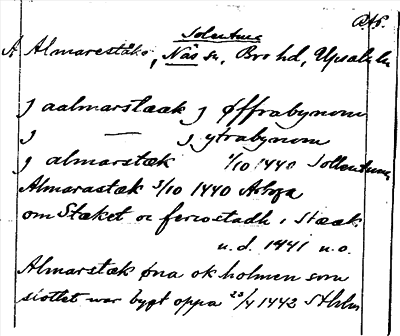 Sollentuna
A Almarestäke, Näs sn, Bro hd, Upsala län
J aalmarstaak J øffrabynom
J — J ytrabynom
J almarstæk 1/10 1440 Sollentuna
Almarastæk 3/10 1440 Arboga
om Stæket oc feriostadh i Stææk
u.d. 1441 u.o.
Almarstæk øna ok holmen som
slottet war bygt oppa 23/4 1443 Sthlm